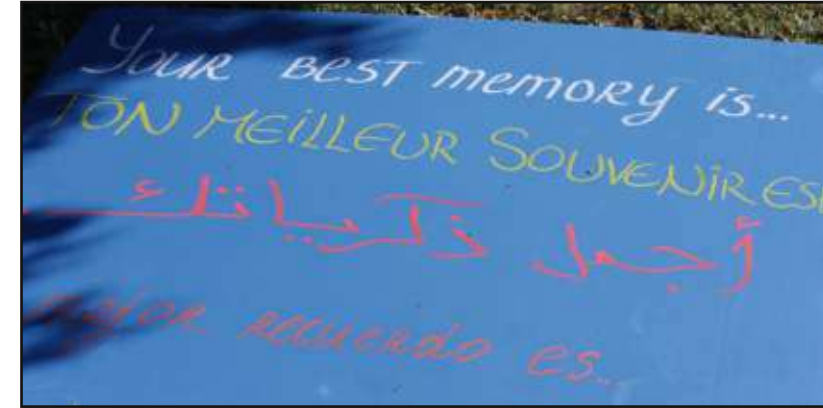 YOUR BEST memORY is...
TON MEILLEUR SOUVENIR ES
أجمل ذكرياتك
mejor recuerdo es...